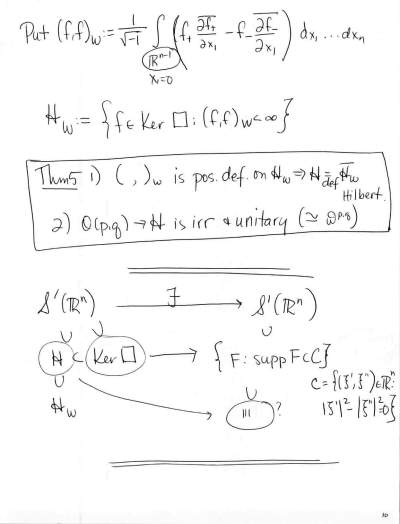 Put (f,f)_W := 1/√-1 ∫_{ℝ^{n-1}, x_1=0} (f_+ \overline{∂f_+/∂x_1} - f_- \overline{∂f_-/∂x_1}) dx_1...dx_n
H_W := {f ∈ Ker □ : (f,f)_W < ∞}
Thm5 1) ( , )_W is pos. def. on H_W ⇒ H =_{def} \overline{H_W} Hilbert.
2) O(p,q) → H is irr & unitary (≃ ϖ^{p,q})
S'(ℝ^n) —F→ S'(ℝ^n)
∪ ∪ ∪
H ⊂ Ker □ → {F : supp F ⊂ C}
C = {(ξ',ξ'') ∈ ℝ^n :
|ξ'|² - |ξ''|² = 0}
∪ ∪
H_W → ?
10